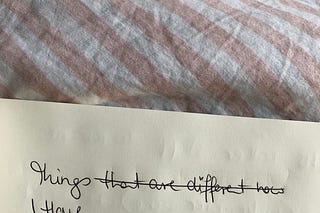 Things that are different now
I Have